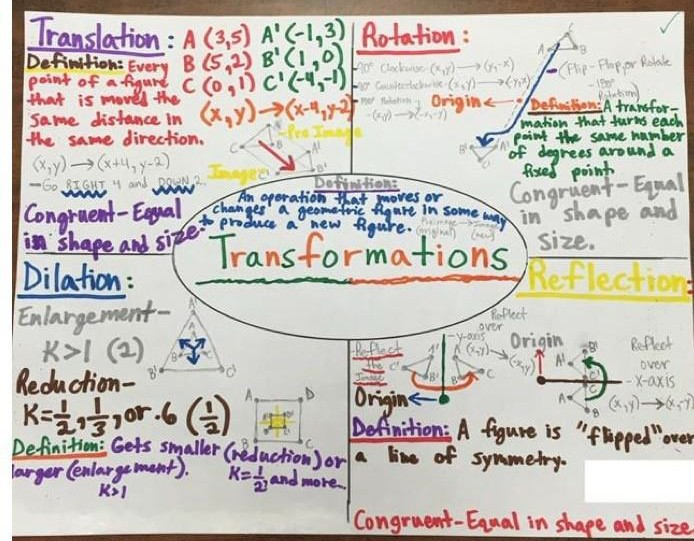 Translation: A (3,5) A'(-1,3)
Definition: Every B (5,2) B'(1,0)
point of a figure C (0,1) C'(-4,-1)
that is moved the
same distance in (x,y)→(x-4,y-2)
the same direction.
(x,y)→(x+4,y-2)
-Go RIGHT 4 and DOWN 2.
Congruent-Equal
in shape and size.
Pre Image
Image
C A B
A' B'
Rotation:
90° Clockwise-(x,y)→(y,-x)
90° Counterclockwise-(x,y)→(-y,x)
180° Rotation
-(x,y)→(-x,-y)
Origin
A C B
(Flip-Flop, or Rotate
180°
Rotation)
B' A'
Definition: A transfor-
mation that turns each
point the same number
of degrees around a
fixed point.
Congruent-Equal
in shape and
size.
Definition:
An operation that moves or
changes a geometric figure in some way
to produce a new figure. Preimage→Image
(original) (new)
Transformations
Dilation:
Enlargement-
K>1 (2)
A'
A
B C
B' C'
Reduction-
K=1/2, 1/3, or .6 (1/2)
A D
B C
Definition: Gets smaller (reduction) or
larger (enlargement). K=1/2, and more..
K>1
Reflection:
-Reflect
the
Image
C' A' B'
A C B
Reflect
over
-y-axis
(x,y)→(-x,y)
Origin
Origin
B'
A'
C'
C
A
B
Reflect
over
-x-axis
(x,y)→(x,-y)
Definition: A figure is "flipped" over
a line of symmetry.
Congruent-Equal in shape and size